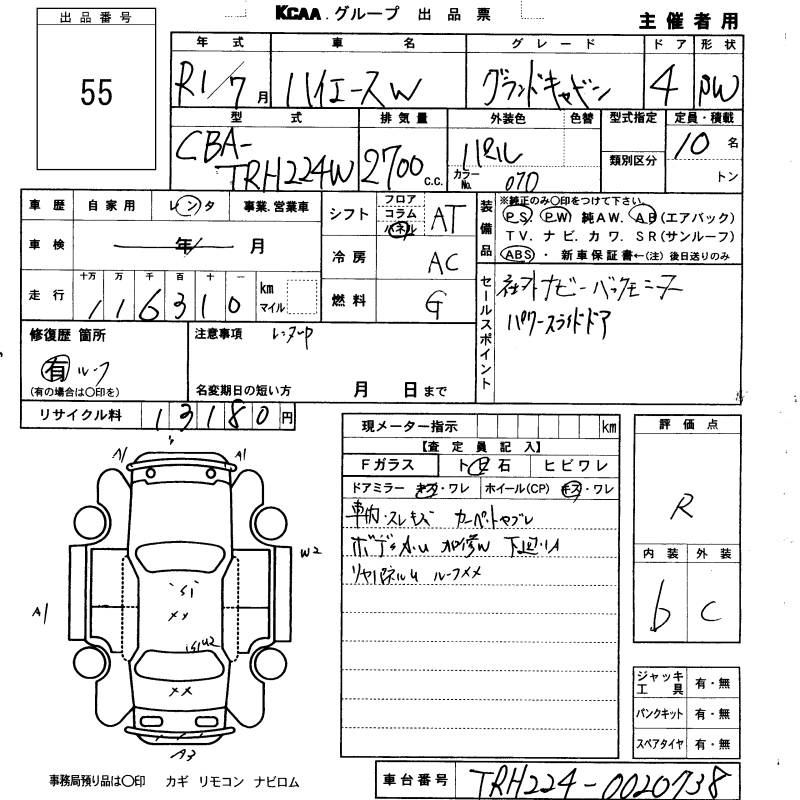 出品番号
55
KCAA.グループ 出品票
主催者用
年式 車名 グレード ドア 形状
R1/7月 ハイエースW グランドキャビン 4 PW
型式 排気量 外装色 色替 型式指定 定員・積載
CBA-TRH224W 2700c.c. パール 10名
カラーNo. 070 類別区分 トン
車歴 自家用 レンタ 事業.営業車
車検 年 月
走行 十万 万 千 百 十 一 km マイル
116310
シフト フロア コラム パネル AT
冷房 AC
燃料 G
装備品
※純正のみ〇印をつけて下さい
PS PW 純AW. AB(エアバック)
TV. ナビ. カワ. SR(サンルーフ)
ABS ・ 新車保証書←(注) 後日送りのみ
セールスポイント
社外ナビ-バックモニター
パワースライドドア
修復歴 箇所
有 ルーフ
(有の場合は〇印を)
注意事項 レンタUP
名変期日の短い方 月 日まで
リサイクル料 13180円
現メーター指示 km
【査定員記入】
Fガラス トビ石 ヒビワレ
ドアミラー キズ・ワレ ホイール(CP) キズ・ワレ
車内・スレキズ カーペットヤブレ
ルーフメメ
評価点
R
内装 外装
b C
ジャッキ工具 有・無
パンクキット 有・無
スペアタイヤ 有・無
A1 A1
W2
A1
S1
××
S1 W2
××
A3
事務局預り品は〇印 カギ リモコン ナビロム
車台番号 TRH224-0020738